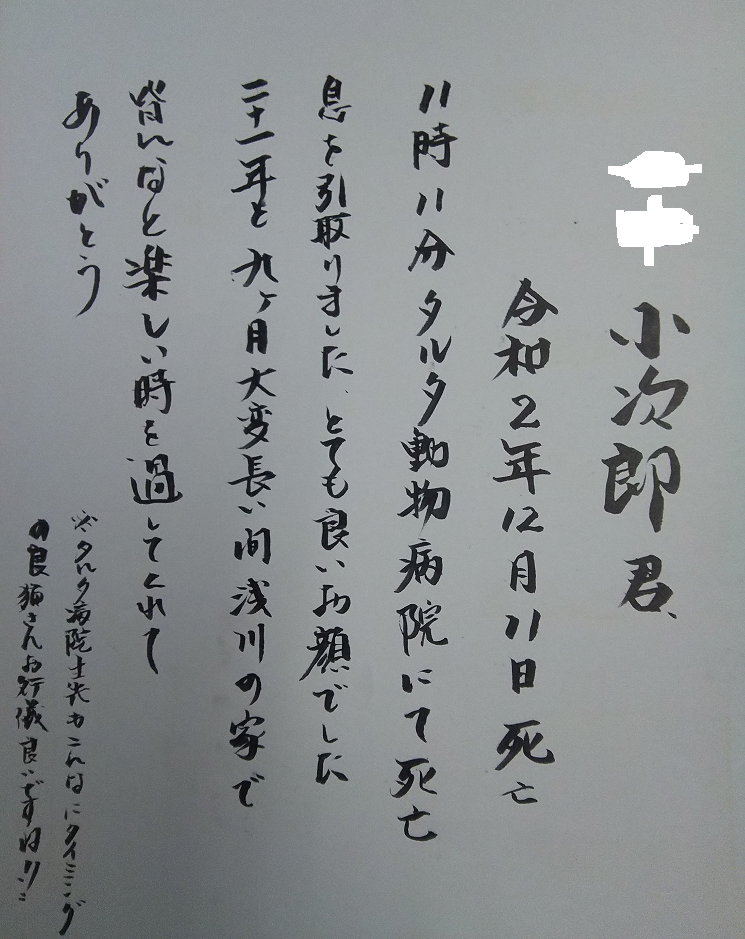 小次郎君、
令和2年12月11日死亡
11時11分タルタ動物病院にて死亡
息を引取りました、とても良いお顔でした
二十一年と九ヶ月大変長い間浅川の家で
皆んなと楽しい時を過してくれて
ありがとう
※タルタ病院主先もこんなにタイミング
の良猫さんお行儀良いですね!!